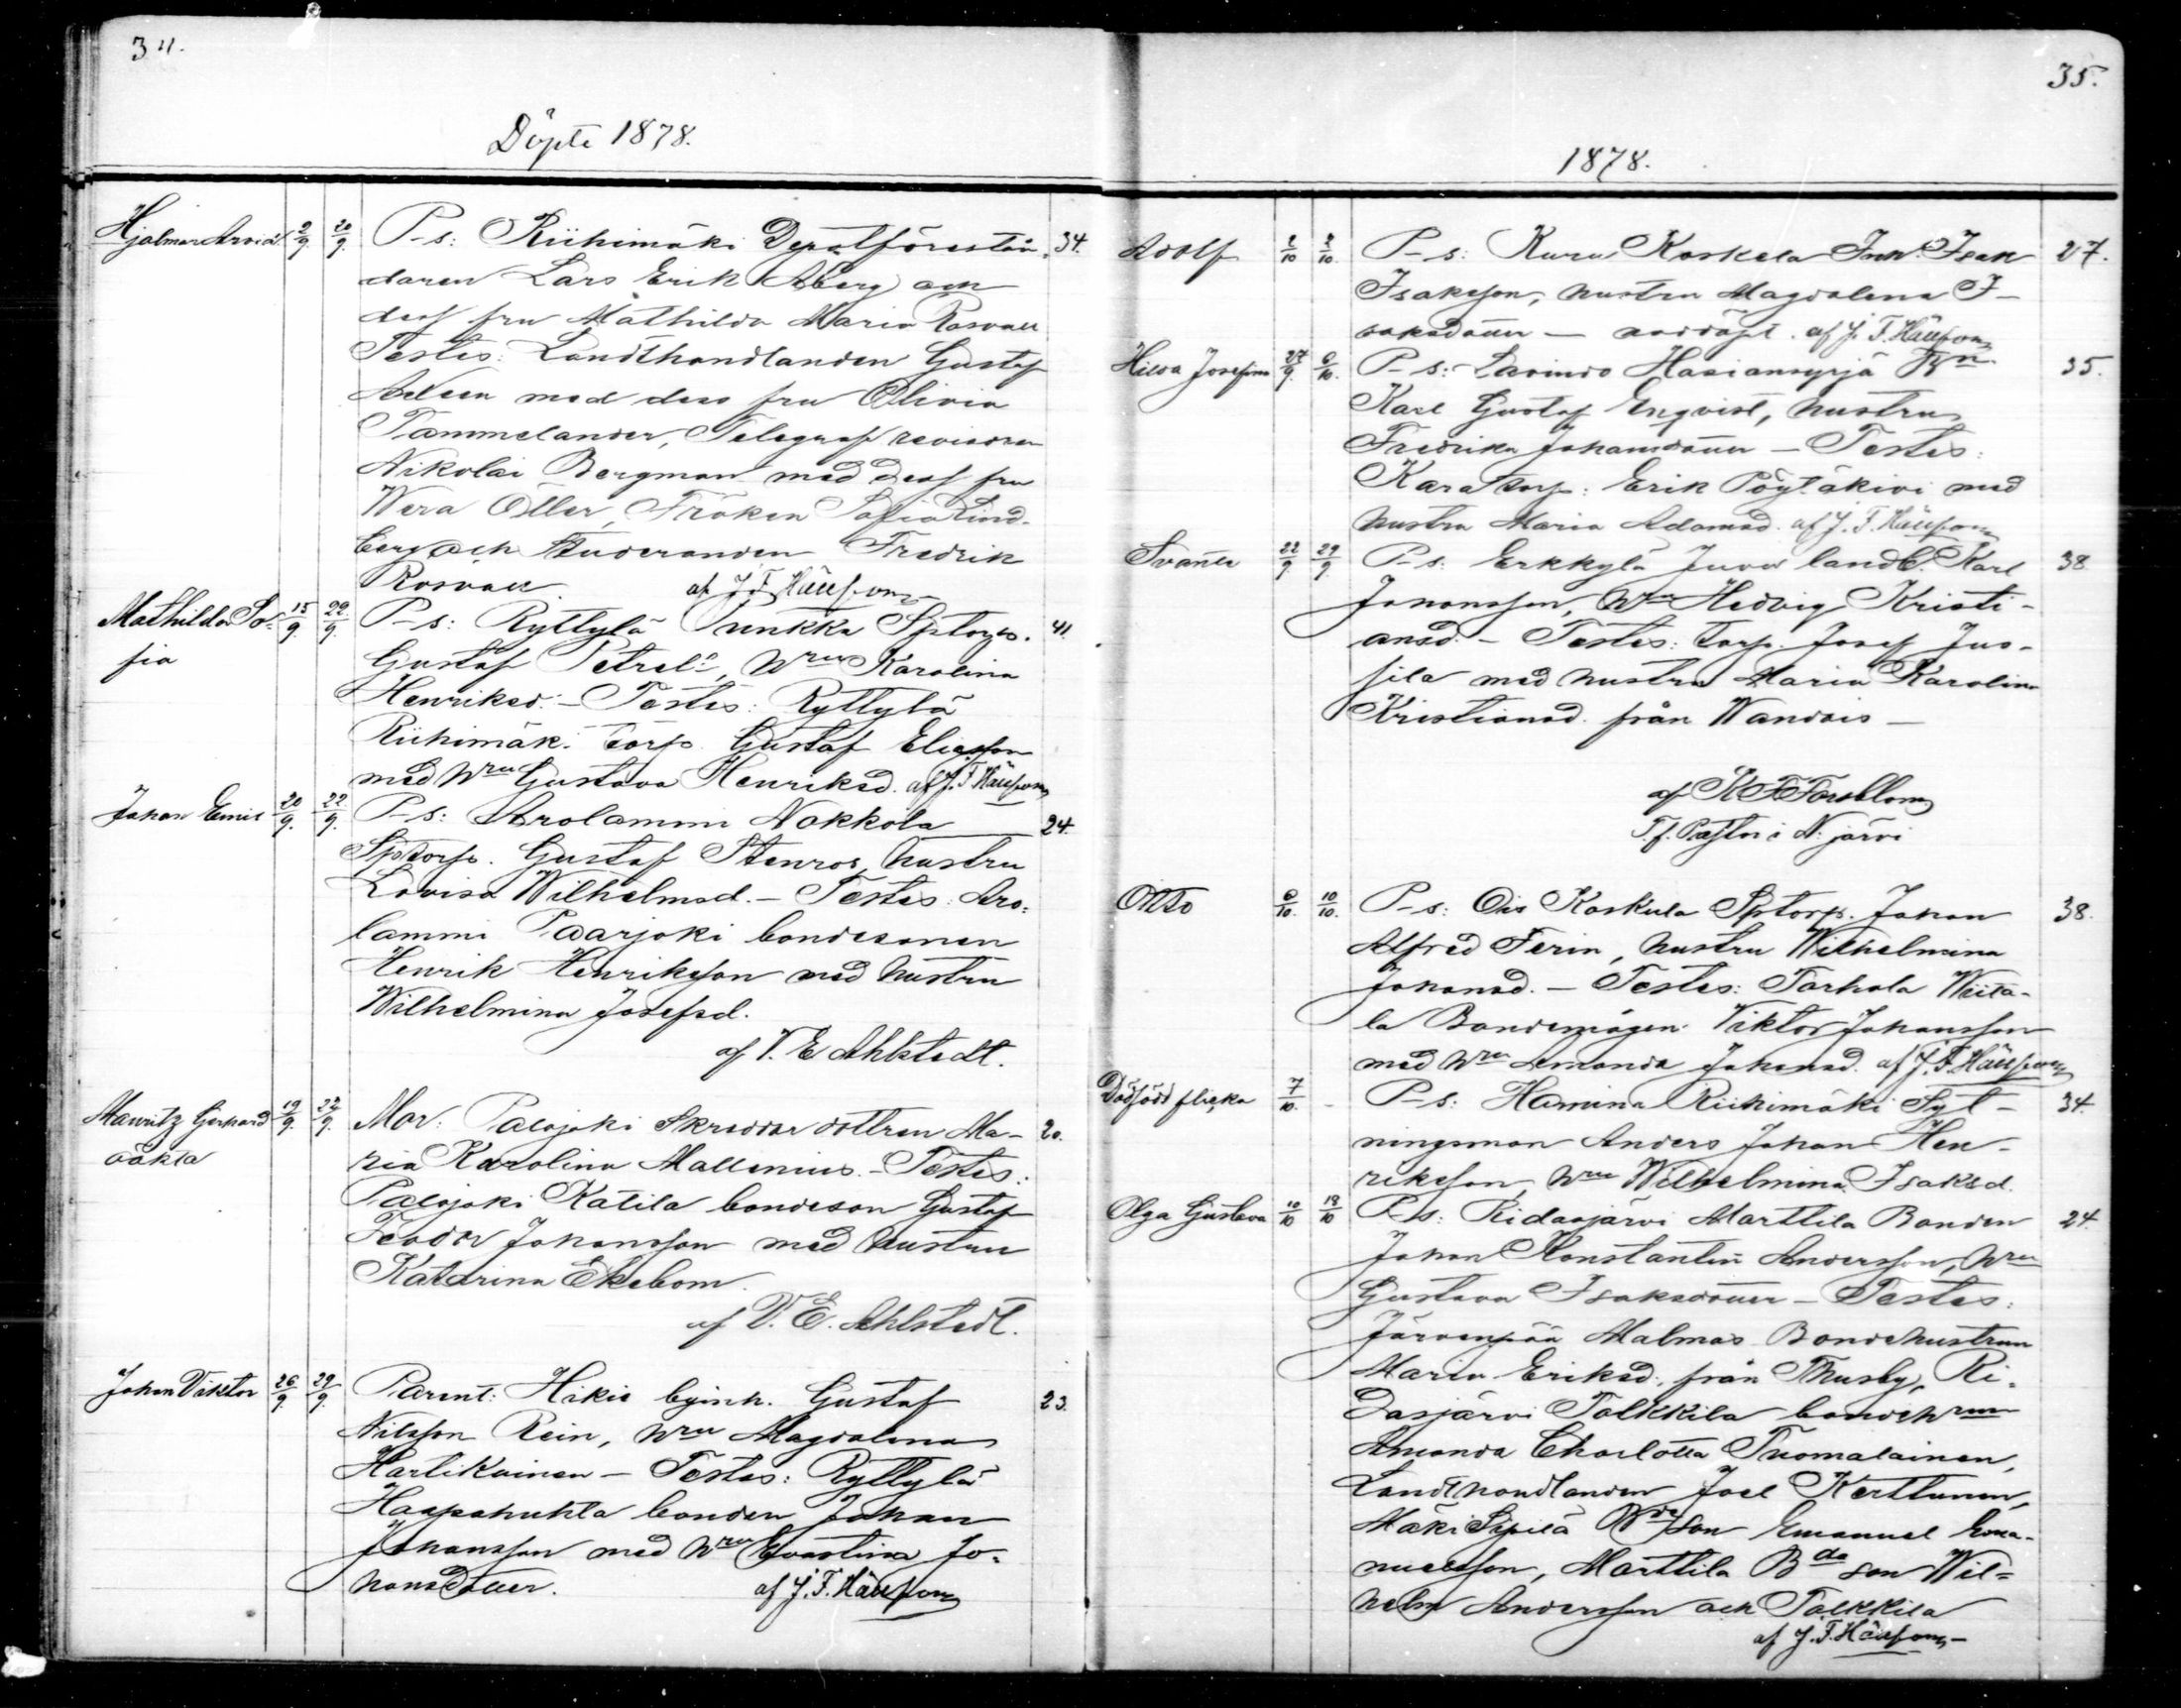 34.
Döpte 1878.
Hjalmar Arvid 2/9 20/9 P-s: Riihimäki Depotförestån- 34.
daren Lars Erik Åberg och
dess fru Mathilda Maria Rosvall
Testes: Landthandlanden Gustaf
med dess fru Olivia
Tammelander, Telegraf revisoren
Nikolai Bergman med dess fru
Wera Öller, Fröken Sofia Lind-
berg och Studeranden Fredrik
Rosvall. af J. F. Hällfors
Mathilda So- 15/9 22/9 P-s: Ryttylä Punkka Sptorp. 41.
fia
Gustaf Petrel:, Hru Karolina
Henriksd. - Testes: Ryttylä
Riihimäk: torp. Gustaf Eliasson
med Hru Gustava Henriksd. af J. F. Hällfors
Johan Emil 20/9. 22/9. P-s: Arolammi Nokkola 24.
Sptorp. Gustaf Stenros, hustru
Lovisa Wilhelmsd. - Testes: Aro-
lammi Paarjoki bondesonen
Henrik Henriksson med hustru
Wilhelmina Josefsd.
af V. E. Ahlstedt.
Mauritz Gerhard 19/9. 22/9. Mor: Palojoki Skreddar dottren Ma- 20.
oäkta
ria Karolina Mallenius. - Testes:
Palojoki Katila bondeson Gustaf
Feodor Johansson med hustru
Katarina Ekebom.
af V. E. Ahlstedt.
Johan Viktor 26/9. 29/9. Parent: Hikiä byinh. Gustaf 23.
Nilsson Rein, Hru Magdalena
Hartikainen - Testes: Ryttylä
Haapahuhta bonden Johan
Johansson med Hru Evastina Jo-
hansdotter. af J. F. Hällfors
35.
1878.
Adolf 2/10 2/10. P-s: Kuru Koskela Inh. Isak 27.
Isaksson, hustru Magdalena I-
saksdotter - nöddöpt. af J. F. Hällfors
Hilda Josefina 27/9. 6/10. P-s: Launds Hasiansyrjä 35.
Karl Gustaf Enqvist, hustru
Fredrika Johansdotter - Testes:
Kara torp: Erik Pöytäkivi med
hustru Maria Adamsd. af J. F. Hällfors
22/9. 29/9. P-s: Erkkylä Juva landb. Karl 38
Johansson, Hru Hedvig Kristi-
ansd. - Testes: torp. Josef Jus-
sila med hustru Maria Karolina
Kristiansd. från Wandais -
af K F Forsblom
T.f. Pastor i N. järvi
Otto 6/10. 10/10. P-s: Ois Koskula Sptorp. Johan 38.
Alfred Ferin, hustru Wilhelmina
Johansd. - Testes: Torhola Wiita-
la Bondemågen Viktor Johansson
med Hru Amanda Johansd. af J. F. Hällfors
Dödfödd flicka 7/10. - P-s: Hamina Riihimäki Syt- 34.
ningsman Anders Johan Hen-
riksson, Hru Wilhelmina Isaksd.
Olga Gustava 10/10 13/10 P-s: Ridasjärvi Marttila Bonden 24.
Johan Konstantin Andersson, Hru
Gustava Isaksdotter - Testes:
Järvenpää Malmas Bondehustrun
Maria Eriksd. från Thusby, Ri-
dasjärvi Tolkkila bondehrun
Amanda Charlotta Tuomalainen,
Landthandlanden Joel Kerttunen,
Mäki Sipilä Bdeson Emanuel Ema-
nuelsson, Marttila Bde son Wil-
helm Andersson och Tolkkila
af J. F. Hällfors -